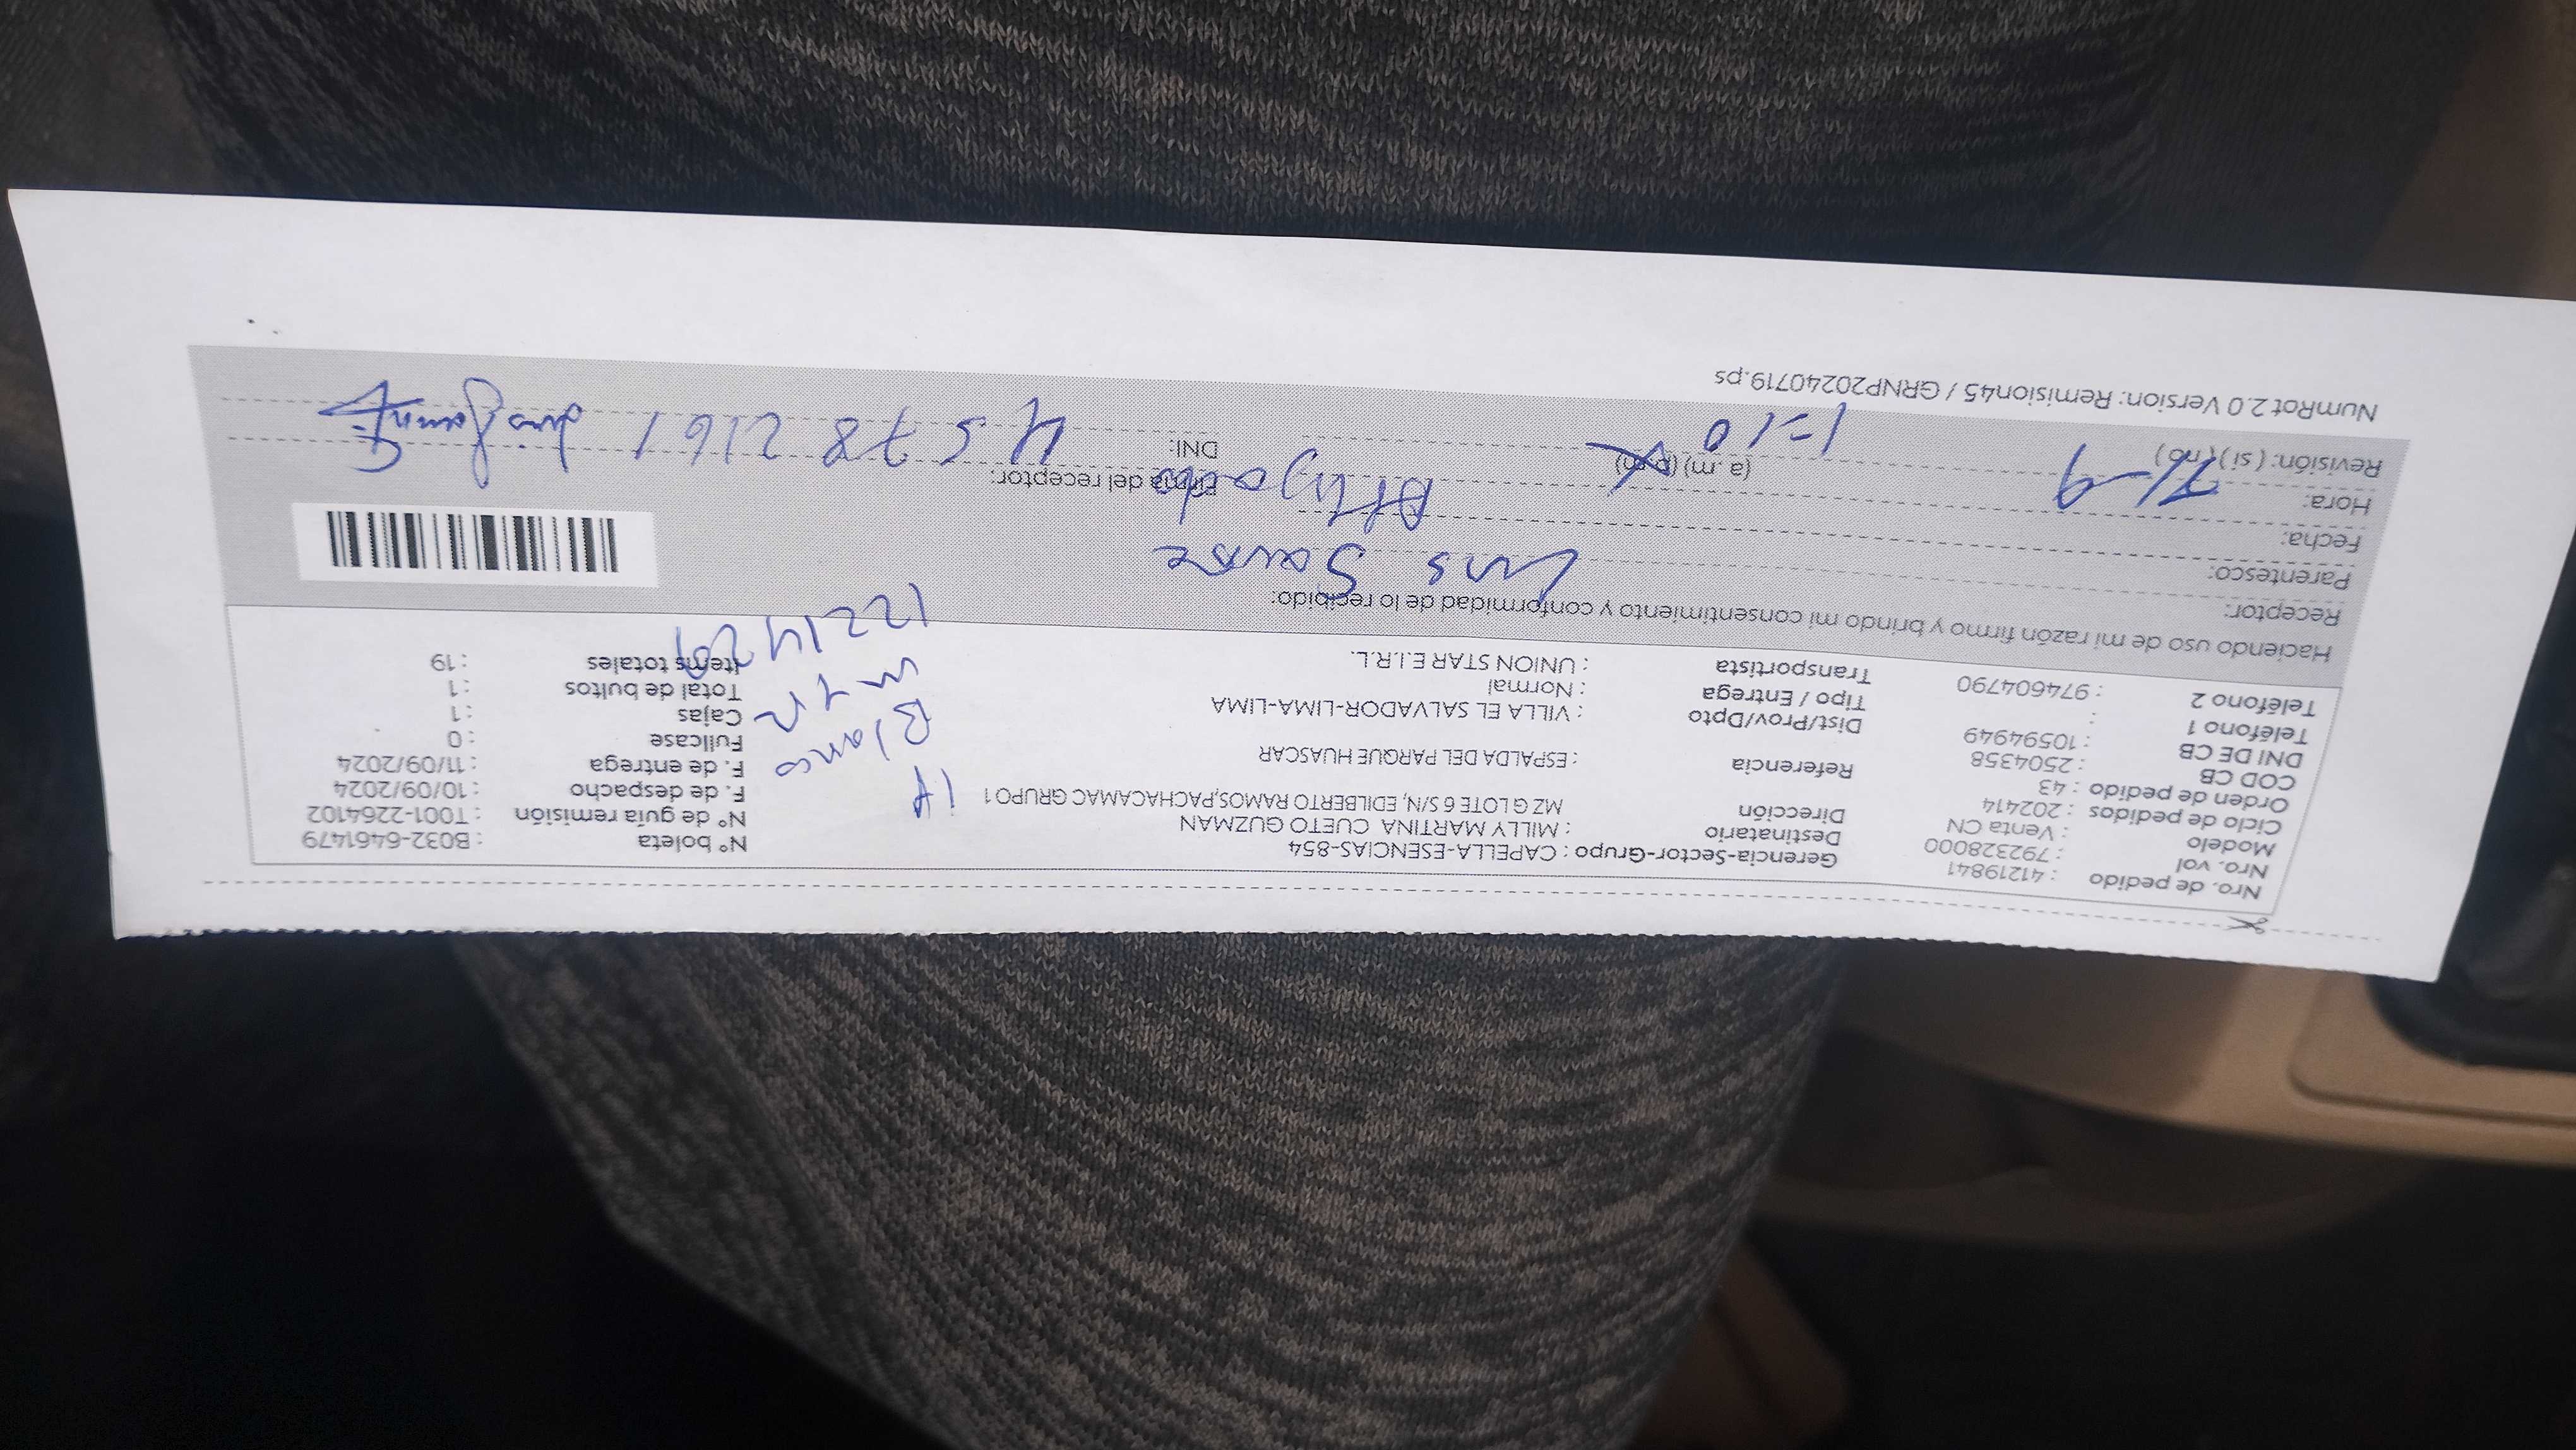 Nro. de pedido : 41219841
Nro. vol : 792328000
Modelo : Venta CN
Ciclo de pedidos : 202414
Orden de pedido : 43
COD CB : 2504358
DNI DE CB : 10594949
Teléfono 1 :
Teléfono 2 : 974604790
Gerencia-Sector-Grupo : CAPELLA-ESENCIAS-854
Destinatario : MILLY MARTINA CUETO GUZMAN
Dirección MZ G LOTE 6 S/N, EDILBERTO RAMOS,PACHACAMAC GRUPO 1
Referencia : ESPALDA DEL PARQUE HUASCAR
Dist/Prov/Dpto : VILLA EL SALVADOR-LIMA-LIMA
Tipo / Entrega : Normal
Transportista : UNION STAR E.I.R.L.
Nº boleta : B032-6461479
Nº de guía remisión : T001-2264102
F. de despacho : 10/09/2024
F. de entrega : 11/09/2024
Fullcase : 0
Cajas : 1
Total de bultos : 1
Items totales : 19
Blanco
Haciendo uso de mi razón firmo y brindo mi consentimiento y conformidad de lo recibido:
Receptor: Luis
Parentesco:
Fecha:
Hora: (a.m) (p.m)
Revisión: ( si ) ( no )
Firma del receptor:
DNI: 45782161
NumRot 2.0 Version: Remision45 / GRNP20240719.ps